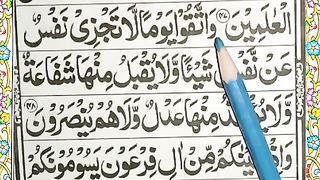 الْعٰلَمِيْنَ ﴿۴۷﴾ وَاتَّقُوْا يَوْمًا لَّا تَجْزِىْ نَفْسٌ
عَنْ نَّفْسٍ شَيْـًٔا وَّلَا يُقْبَلُ مِنْهَا شَفَاعَةٌ
وَّلَا يُؤْخَذُ مِنْهَا عَدْلٌ وَّلَا هُمْ يُنْصَرُوْنَ ﴿۴۸﴾
وَاِذْ نَجَّيْنٰكُمْ مِّنْ اٰلِ فِرْعَوْنَ يَسُوْمُوْنَكُمْ